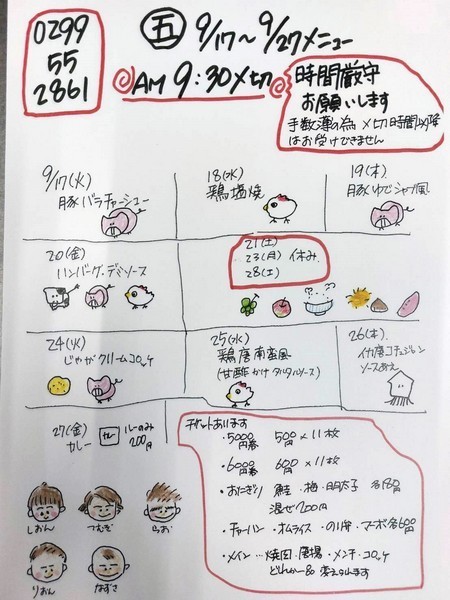 0299
55
2861
五 9/17〜9/27メニュー
AM 9:30〆切
時間厳守
お願いします
手数薄の為 〆切時間以降
はお受けできません
9/17(火)
豚バラチャーシュー
18(水)
鶏塩焼
19(木)
豚ゆでシャブ風
20(金)
ハンバーグ・デミソース
21(土)
23(月) 休み
28(土)
24(火)
じゃがクリームコロッケ
25(水)
鶏唐南蛮風
(甘酢かけタルタルソース)
26(木)
イカ唐コチュジャン
ソースあえ
27(金)
カレー
ルーのみ
200円
チケットあります
・5000円券 500円×11枚
・6000円券 600円×11枚
・おにぎり 鮭・梅・明太子 各180円
混ぜ200円
・チャーハン・オムライス・のり弁・マーボ各600円
・メイン…焼肉・唐揚・メンチ・コロッケ
どれか一品 変えられます
しおん
つむぎ
らお
りおん
なずさ